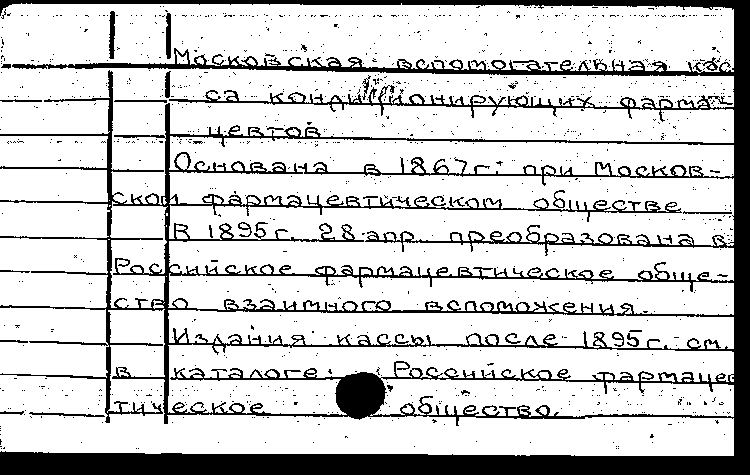 Московская вспомогательная кас
са кондиционирующих фарма-
цевтов
Основана в 1867г. при Москов-
ском фармацевтическом обществе
В 1895г. 28 апр. преобразована в
Российское фармацевтическое обще-
ство взаимного вспоможения.
Издания кассы после 1895г. см.
в каталоге: Российское фармацев
тическое общество.